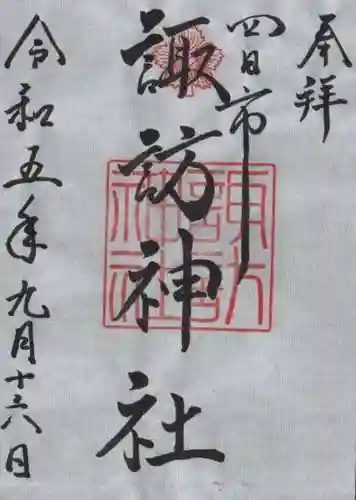 奉拝
四日市
諏訪神社
諏訪神社
令和五年九月十六日